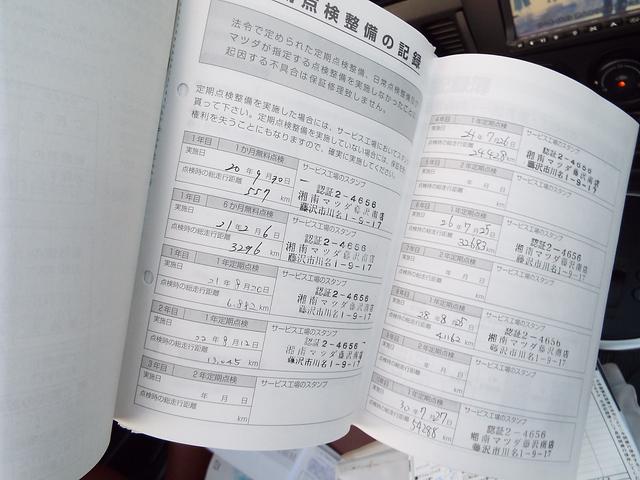 点検整備の記録
法令で定められた定期点検整備、日常点検整備
マツダが指定する点検整備を実施しなかったことに
起因する不具合は保証修理致しません。
定期点検整備を実施した場合には、サービス工場において
貰って下さい。定期点検整備を実施していない場合には、保証
権利を失うことにもなりますので、確実に実施してください。
1年目 1か月無料点検 サービス工場のスタンプ
実施日
20年9月30日
点検時の総走行距離
557 km
認証2-4656
湘南マツダ藤沢南店
藤沢市川名1-9-17
1年目 6か月無料点検 サービス工場のスタンプ
実施日
21年2月6日
点検時の総走行距離
3296 km
認証2-4656
湘南マツダ藤沢南店
藤沢市川名1-9-17
1年目 1年定期点検 サービス工場のスタンプ
実施日
21年9月20日
点検時の総走行距離
km
認証2-4656
湘南マツダ藤沢南店
藤沢市川名1-9-17
2年目 1年定期点検 サービス工場のスタンプ
実施日
22年9月12日
点検時の総走行距離
km
認証2-4656
湘南マツダ藤沢南店
藤沢市川名1-9-17
3年目 2年定期点検 サービス工場のスタンプ
実施日
年 月 日
点検時の総走行距離
km
1年定期点検 サービス工場のスタンプ
実施日
24年7月26日
点検時の総走行距離
認証2-4656
湘南マツダ藤沢南店
藤沢市川名1-9-17
サービス工場のスタンプ
年 月 日
km
サービス工場のスタンプ
実施日
26年7月25日
32683 km
認証2-4656
湘南マツダ藤沢南店
藤沢市川名1-9-17
2年定期点検 サービス工場のスタンプ
実施日
年 月 日
点検時の総走行距離
km
1年定期点検 サービス工場のスタンプ
実施日
点検時の総走行距離
km
認証2-4656
湘南マツダ藤沢南店
藤沢市川名1-9-17
2年定期点検 サービス工場のスタンプ
実施日
年 月 日
点検時の総走行距離
km
1年定期点検 サービス工場のスタンプ
実施日
30年7月27日
点検時の総走行距離
km
認証2-4656
湘南マツダ藤沢南店
藤沢市川名1-9-17